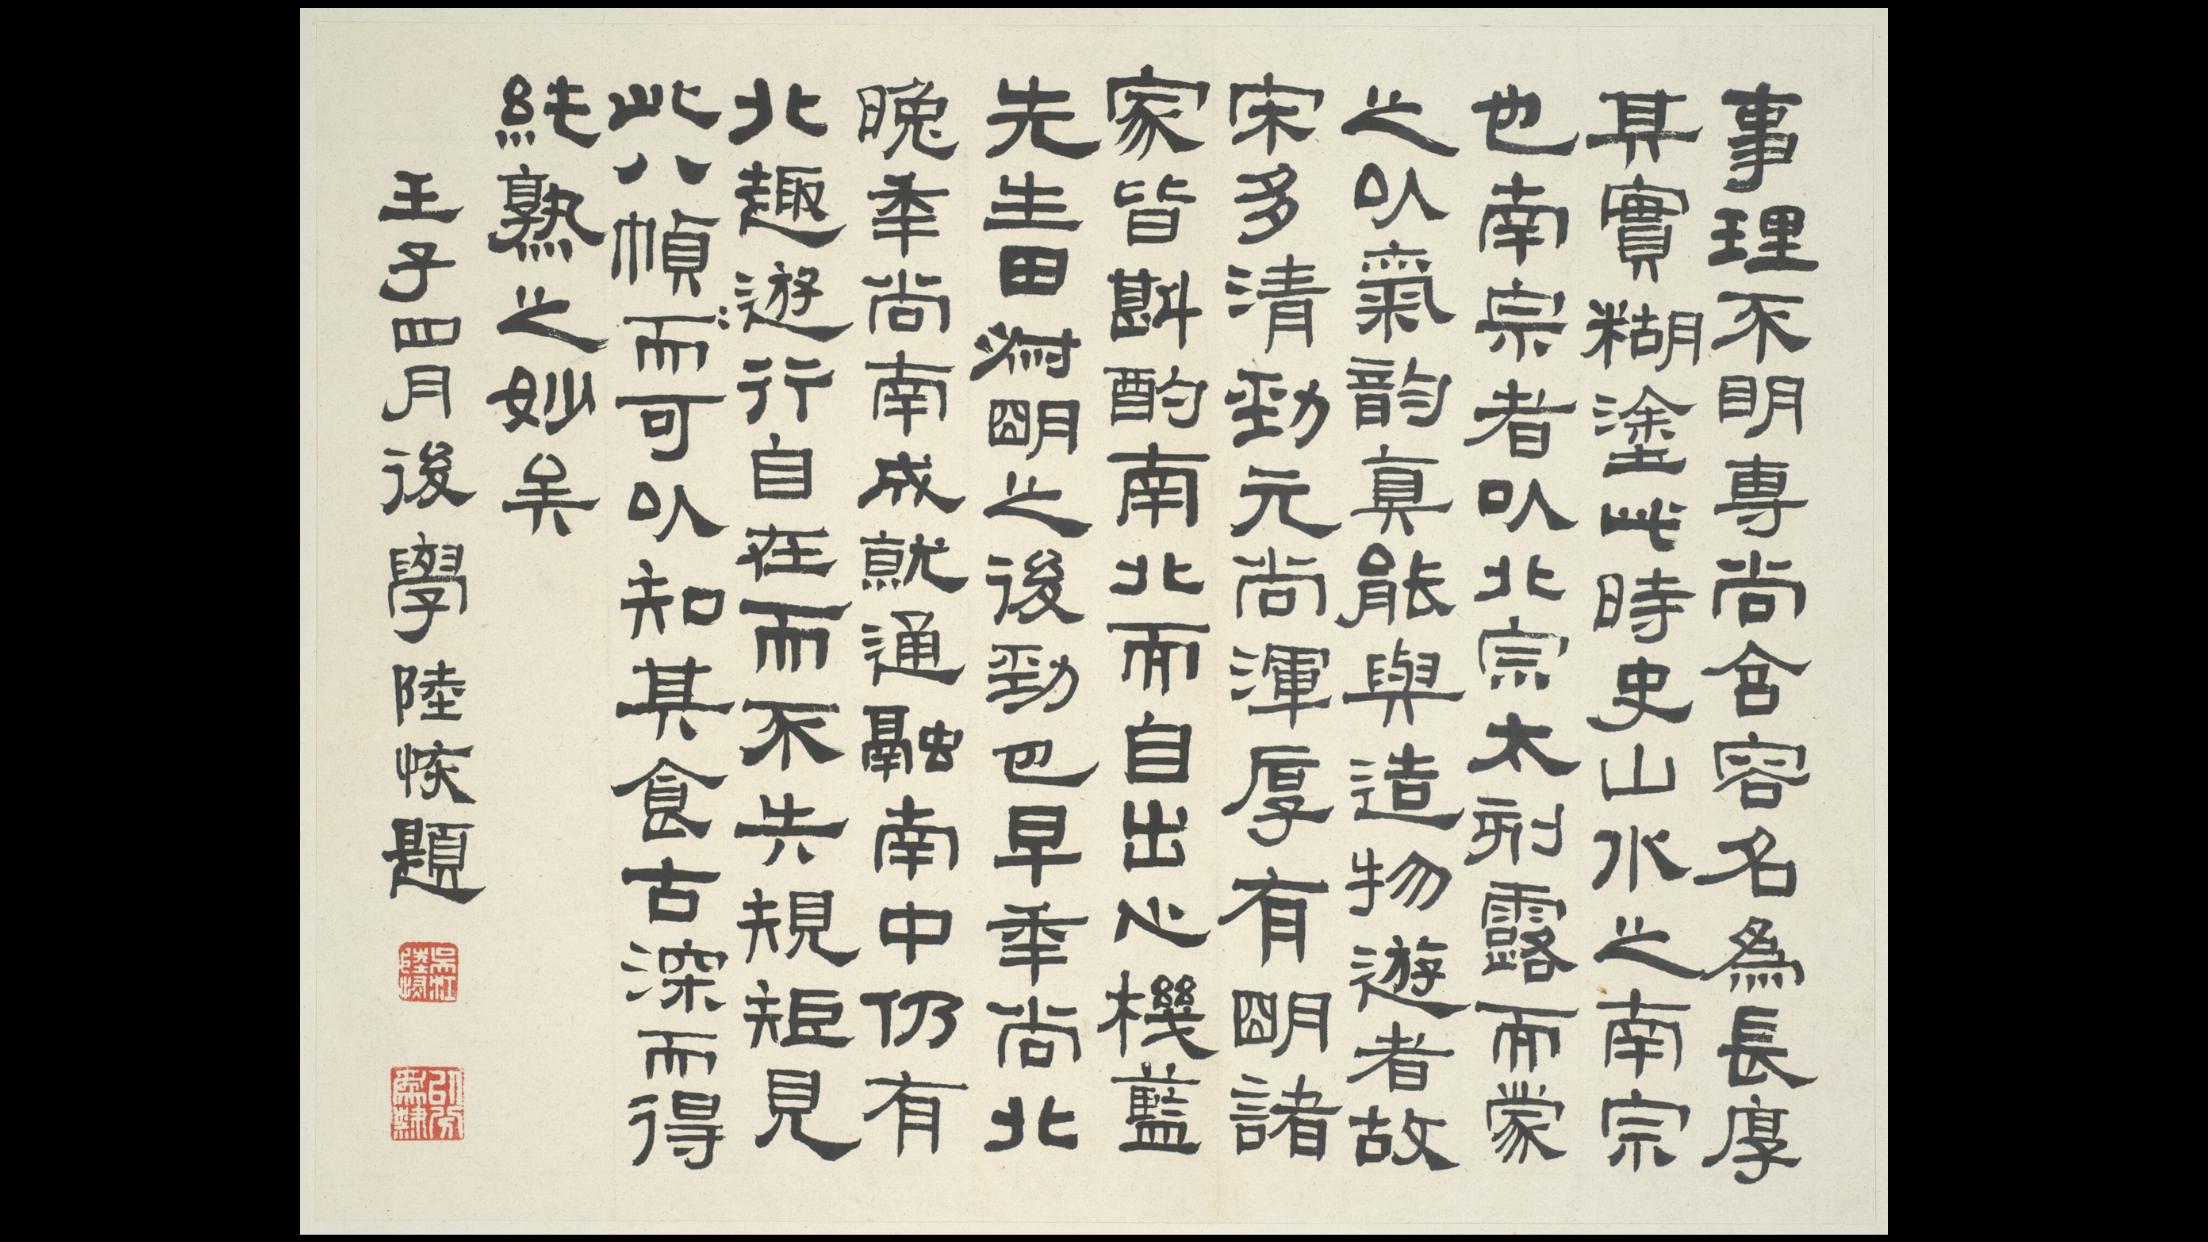 事理不明專尚含容名為長厚
其實糊塗此時史山水之南宗
也南宗者以北宗太刻露而蒙
之以氣韵真能與造物遊者故
宋多清勁元尚渾厚有明諸
家皆斟酌南北而自出心機藍
先生田尌明之後勁也早年尚北
晚年尚南成就通融南中仍有
北趣遊行自在而不失規矩見
此八幀而可以知其食古深而得
純熟之妙矣
壬子四月後學陸恢題